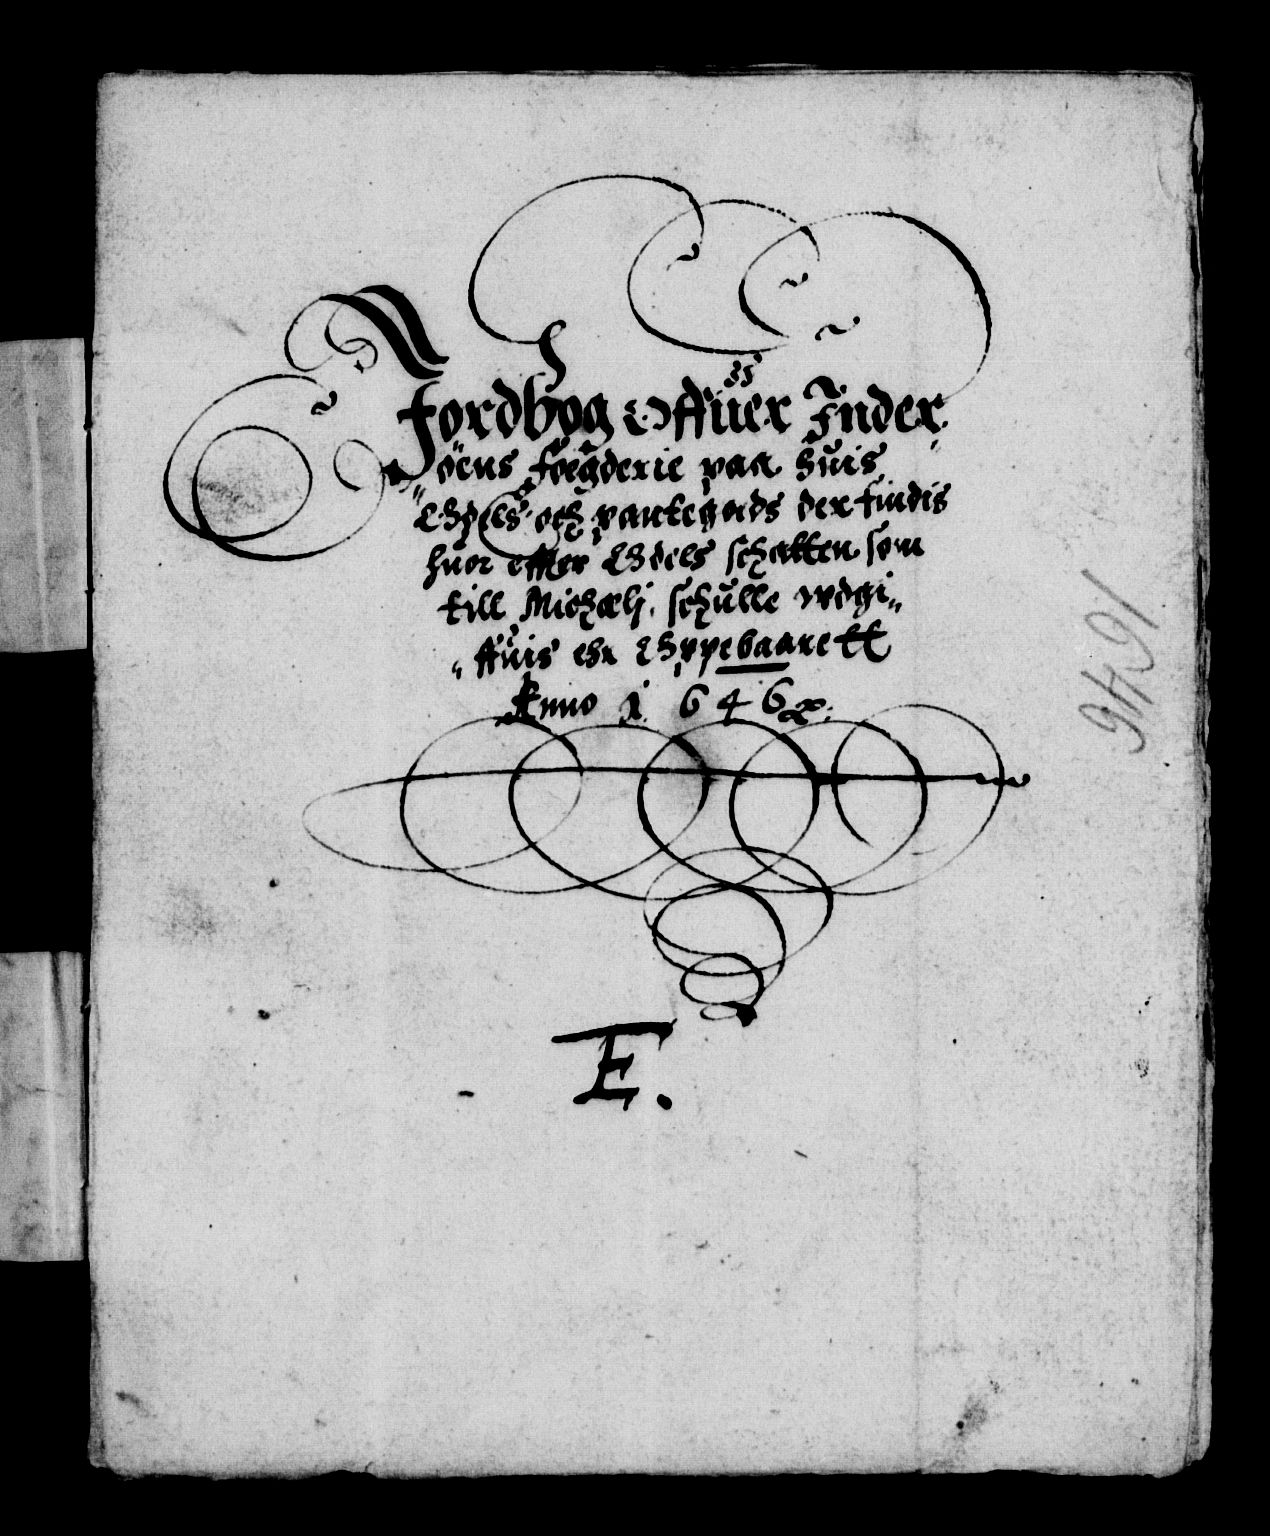 Jordbog Offuer Inder
öens foegderie paa huis
Odels och pantegods der findis
huor effter Odels schatten som
till Michælj. schulle wdgi„
„ffuis ehr Oppebaarett
Anno 1646
E.
1646